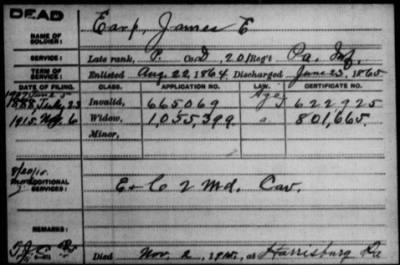 DEAD
NAME OF SOLDIER: Earp, James E
SERVICE: Late rank, P. Co. D, 201 Reg't Pa. Inf.
TERM OF SERVICE: Enlisted Aug. 22, 1864, Discharged June 23, 1865
DATE OF FILING. CLASS. APPLICATION NO. LAW. CERTIFICATE NO.
1907 June
1888, July 23 Invalid, 665069 Age 622925
1915. Nov. 6 Widow, 1,055,399 a. 801,665.
Minor,
ADDITIONAL SERVICES: E & C 2 Md. Cav.
REMARKS:
Died Nov. 2, 1915, at Harrisburg Pa